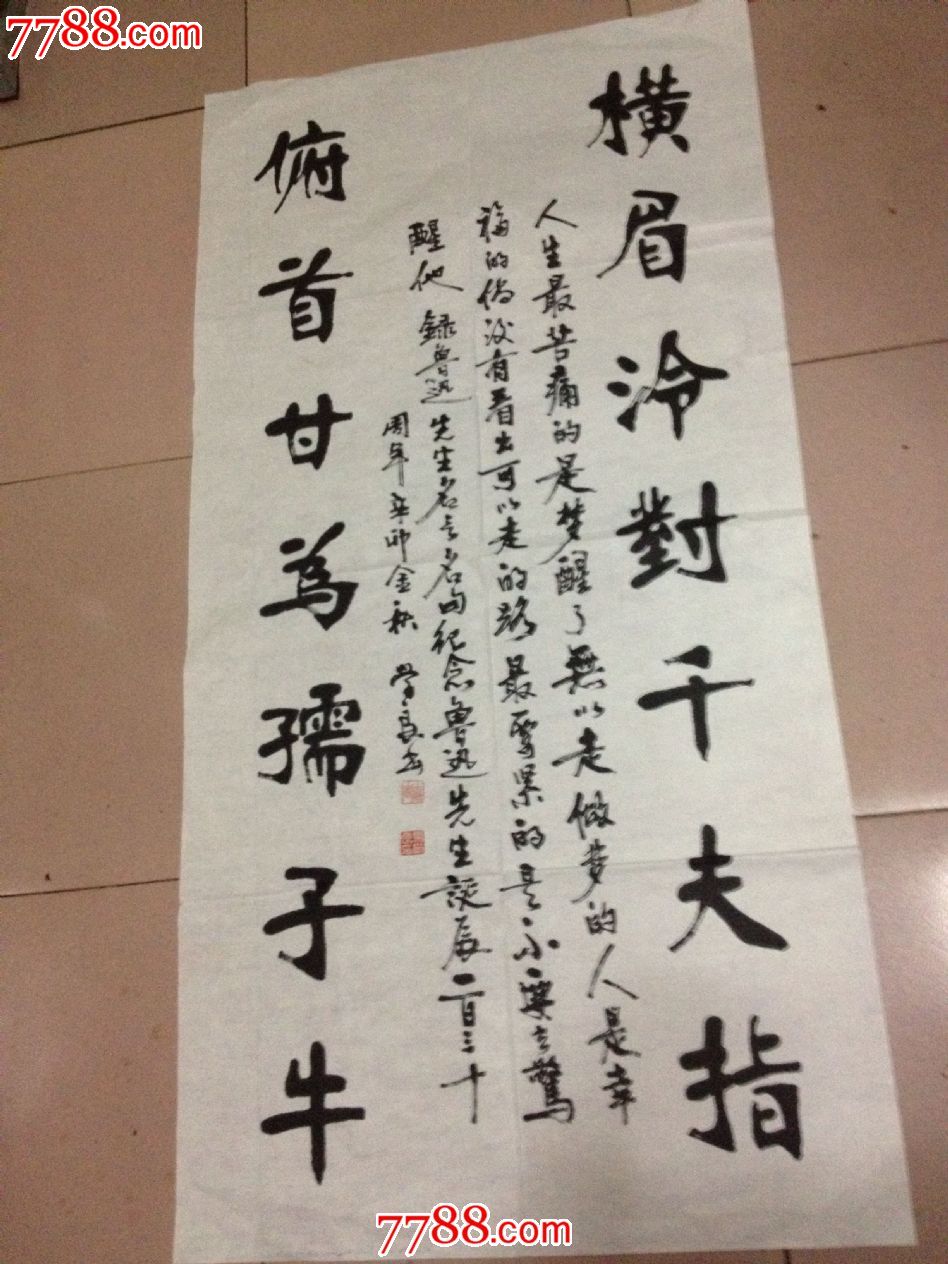 7788.com
橫眉冷對千夫指
人生最苦痛的是梦醒了無以走做梦的人是幸
福的倘没有看出可以走的路最要紧的是不要去驚
醒他 録魯迅先生名言名句纪念魯迅先生誕辰一百三十
周年辛卯金秋 学良书
俯首甘為孺子牛
7788.com